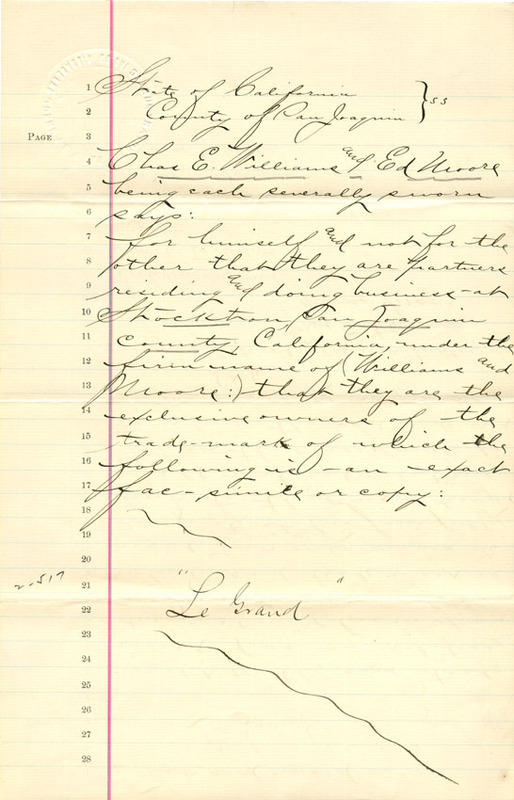 1 State of California } ss
2 County of San Joaquin
PAGE 3
4 Chas E. Williams and Ed Moore
5 being each severally sworn
6 says:
7 for himself and not for the
8 other that they are partners
9 residing and doing business at
10 Stockton, San Joaquin
11 County, California, under the
12 firm name of (Williams and
13 Moore:) that they are the
14 exclusive owners of the
15 trade-mark of which the
16 following is - an exact
17 fac-simile or copy:
18
19
20
2517 21
22 "Le Grand"
23
24
25
26
27
28